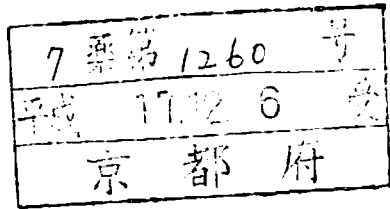 7薬第1260号
平成 17.12.6 受
京都府